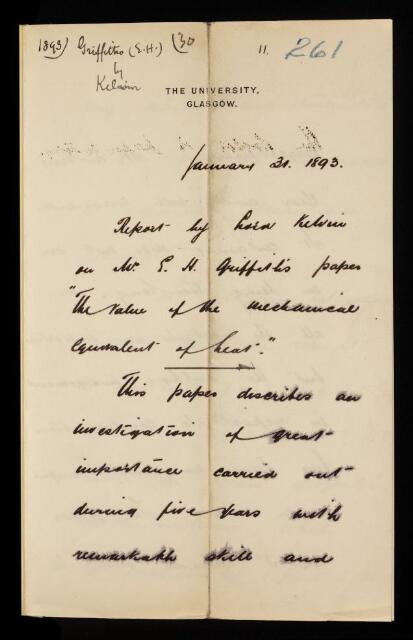 1893) Griffiths (E.H.) (30
by
Kelvin
11.
261
THE UNIVERSITY,
GLASGOW.
January 21. 1893.
Report by Lord Kelvin
on Mr E. H. Griffith's paper
"The Value of the mechanical
equivalent of heat."
This paper describes an
investigation of great
importance carried out
during five years with
remarkable skill and